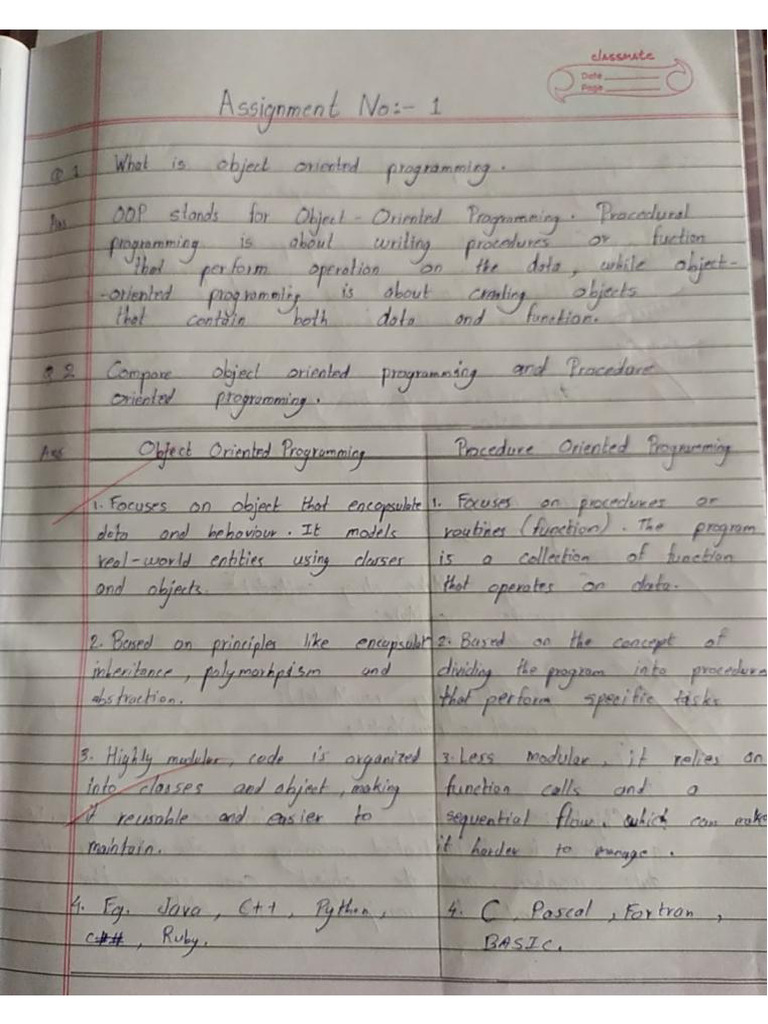 classmate
Date
Page
Assignment No:- 1
Q 1 What is object oriented programming.
Ans OOP stands for Object-Oriented Programming. Procedural
programming is about writing procedures or fuction
that perform operation on the data, while object-
-oriented programming is about creating objects
that contain both data and function.
Q 2 Compare object oriented programming and Procedure
oriented programming.
Ans Object Oriented Programming
1. Focuses on object that encapsulate
data and behaviour. It models
real-world entities using classes
and objects.
2. Based on principles like encapsulat
inheritance, polymorhpism and
abstraction.
3. Highly modular, code is organized
into classes and object, making
it reusable and easier to
maintain.
4. Eg. Java, C++, Python,
C##, Ruby.
Procedure Oriented Programming
1. Focuses on procedures or
routines (function). The program
is a collection of function
that operates on data.
2. Based on the concept of
dividing the program into procedure
that perform specific tasks
3. Less modular, it relies on
function calls and a
sequential flow, which can make
it harder to manage.
4. C, Pascal, Fortran,
BASIC.